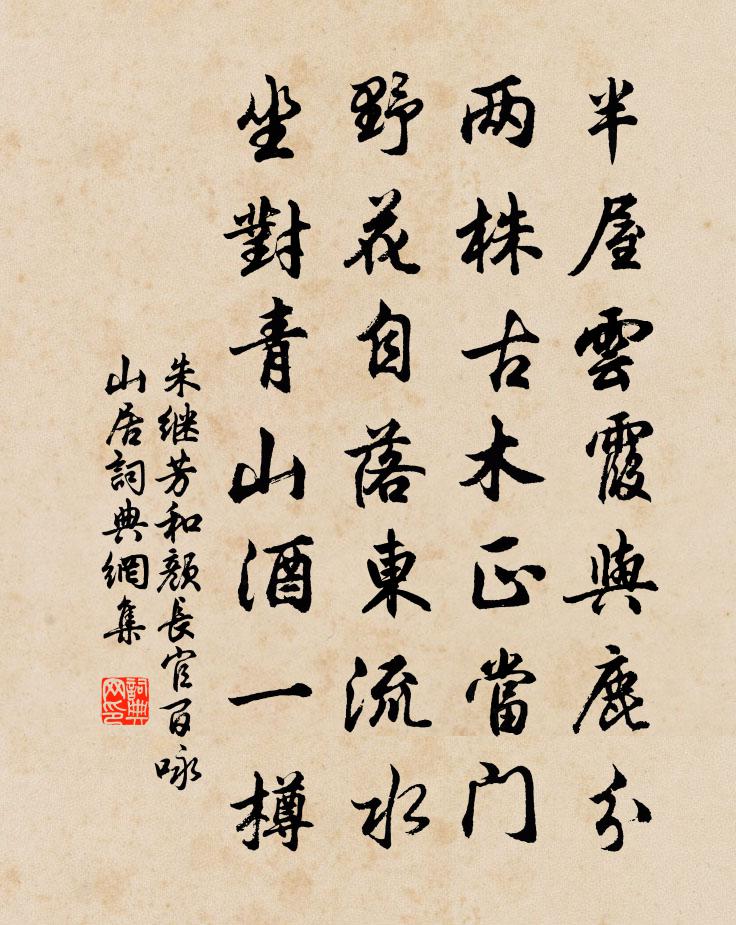 半屋雲霞與鹿分
两株古木正當门
野花自落東流水
坐對青山酒一樽
朱继芳和顔長官百咏
山居詞典網集
詞典
网印